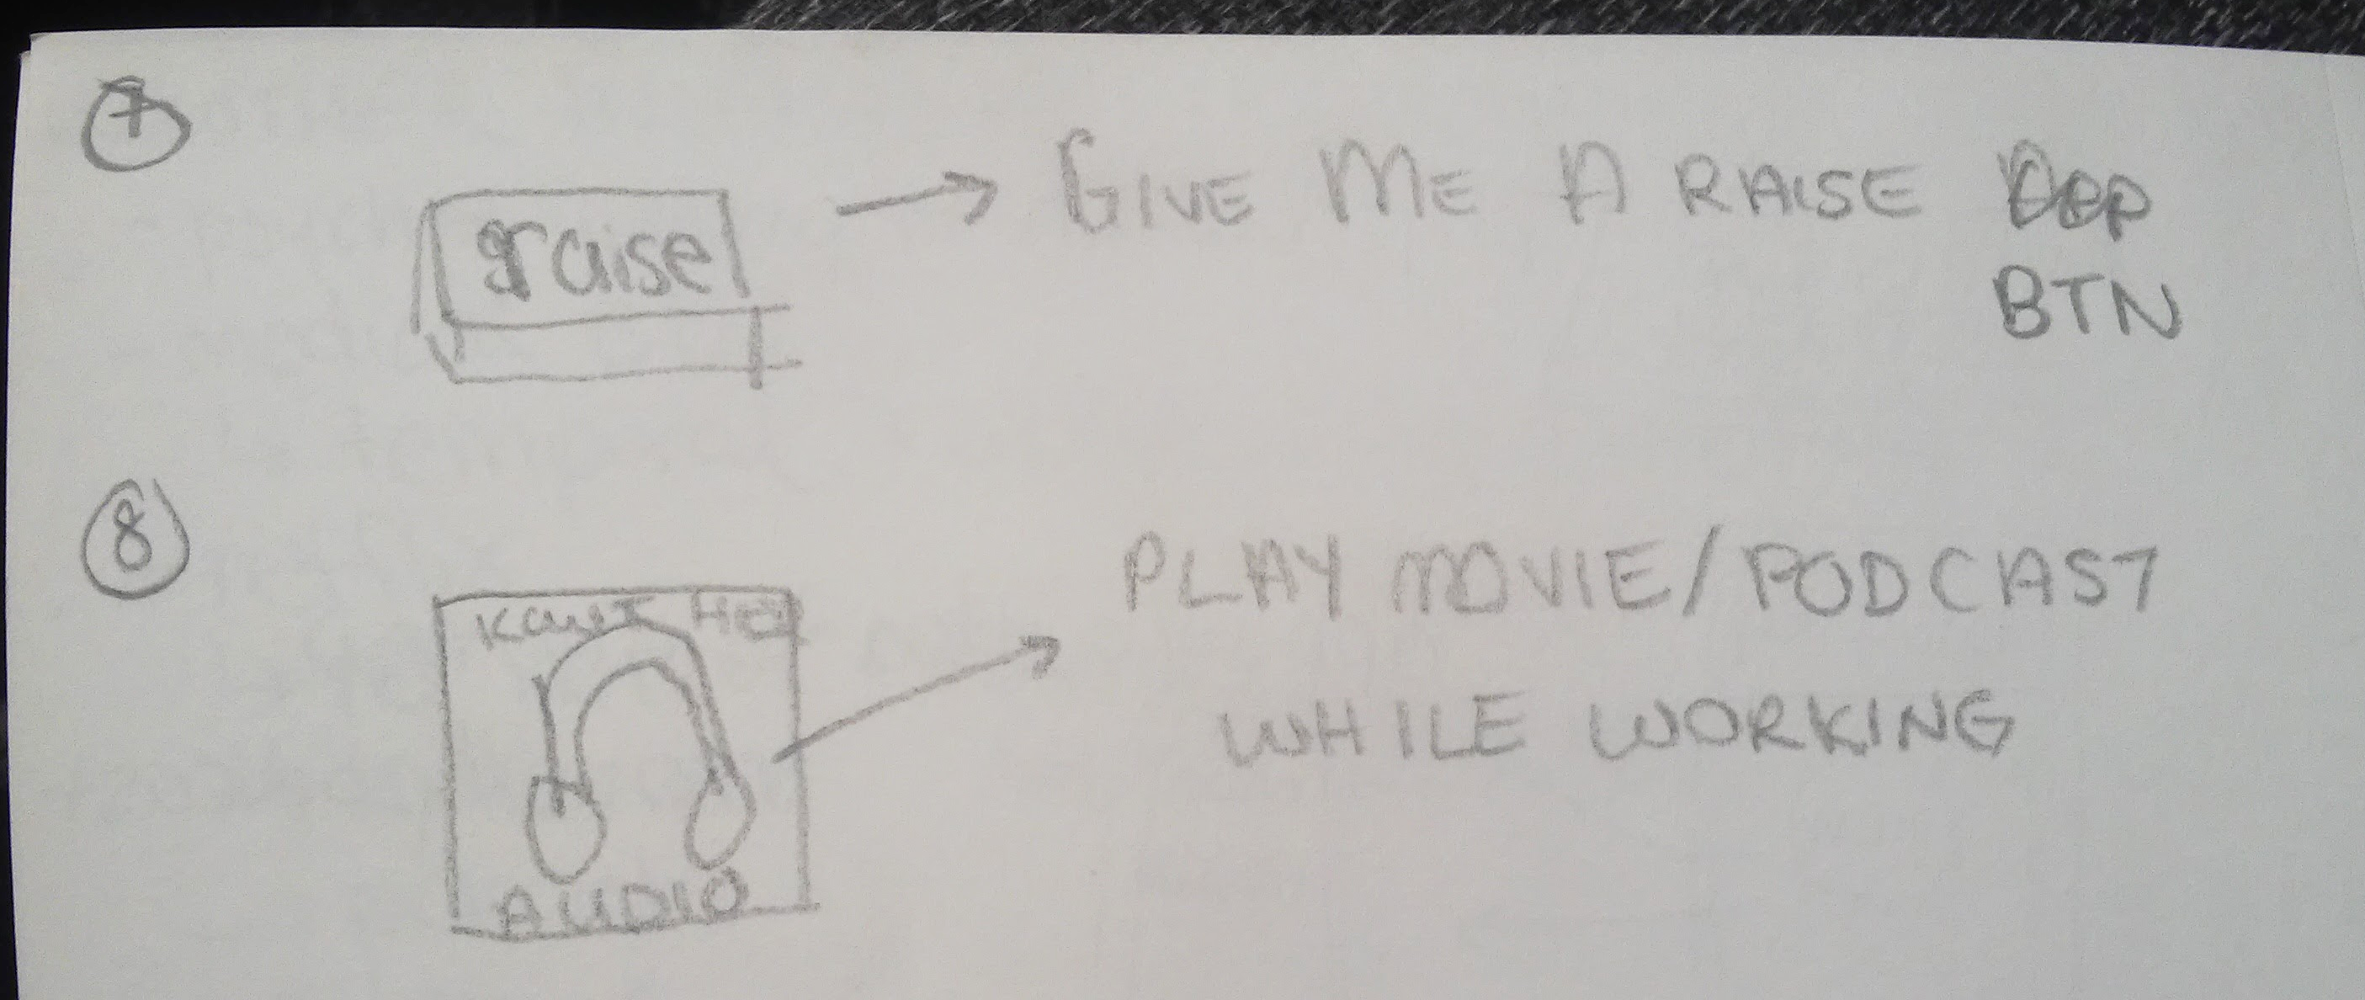 7
raise
GIVE ME A RAISE
BTN
8
AUDIO
PLAY MOVIE/PODCAST
WHILE WORKING